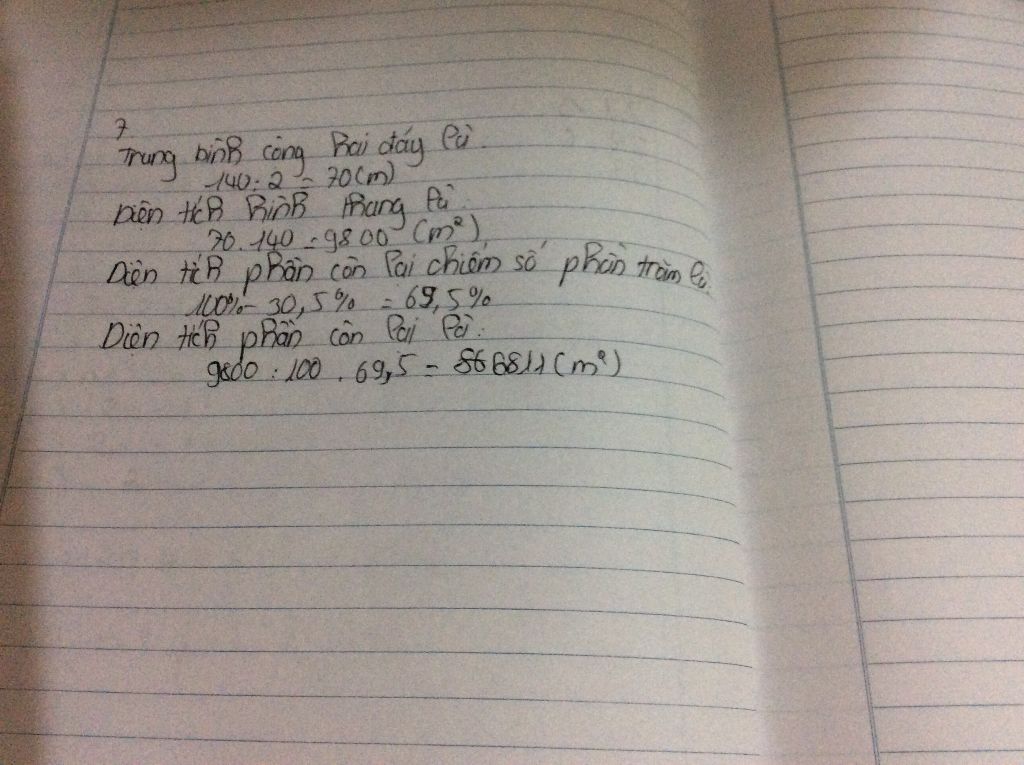 7
Trung bình cộng hai đáy là:
140 : 2 = 70 (m)
Diện tích hình thang là:
70 . 140 = 9800 (m²)
Diện tích phần còn lại chiếm số phần trăm là:
100% - 30,5% = 69,5%
Diện tích phần còn lại là:
9800 : 100 . 69,5 = 866811 (m²)